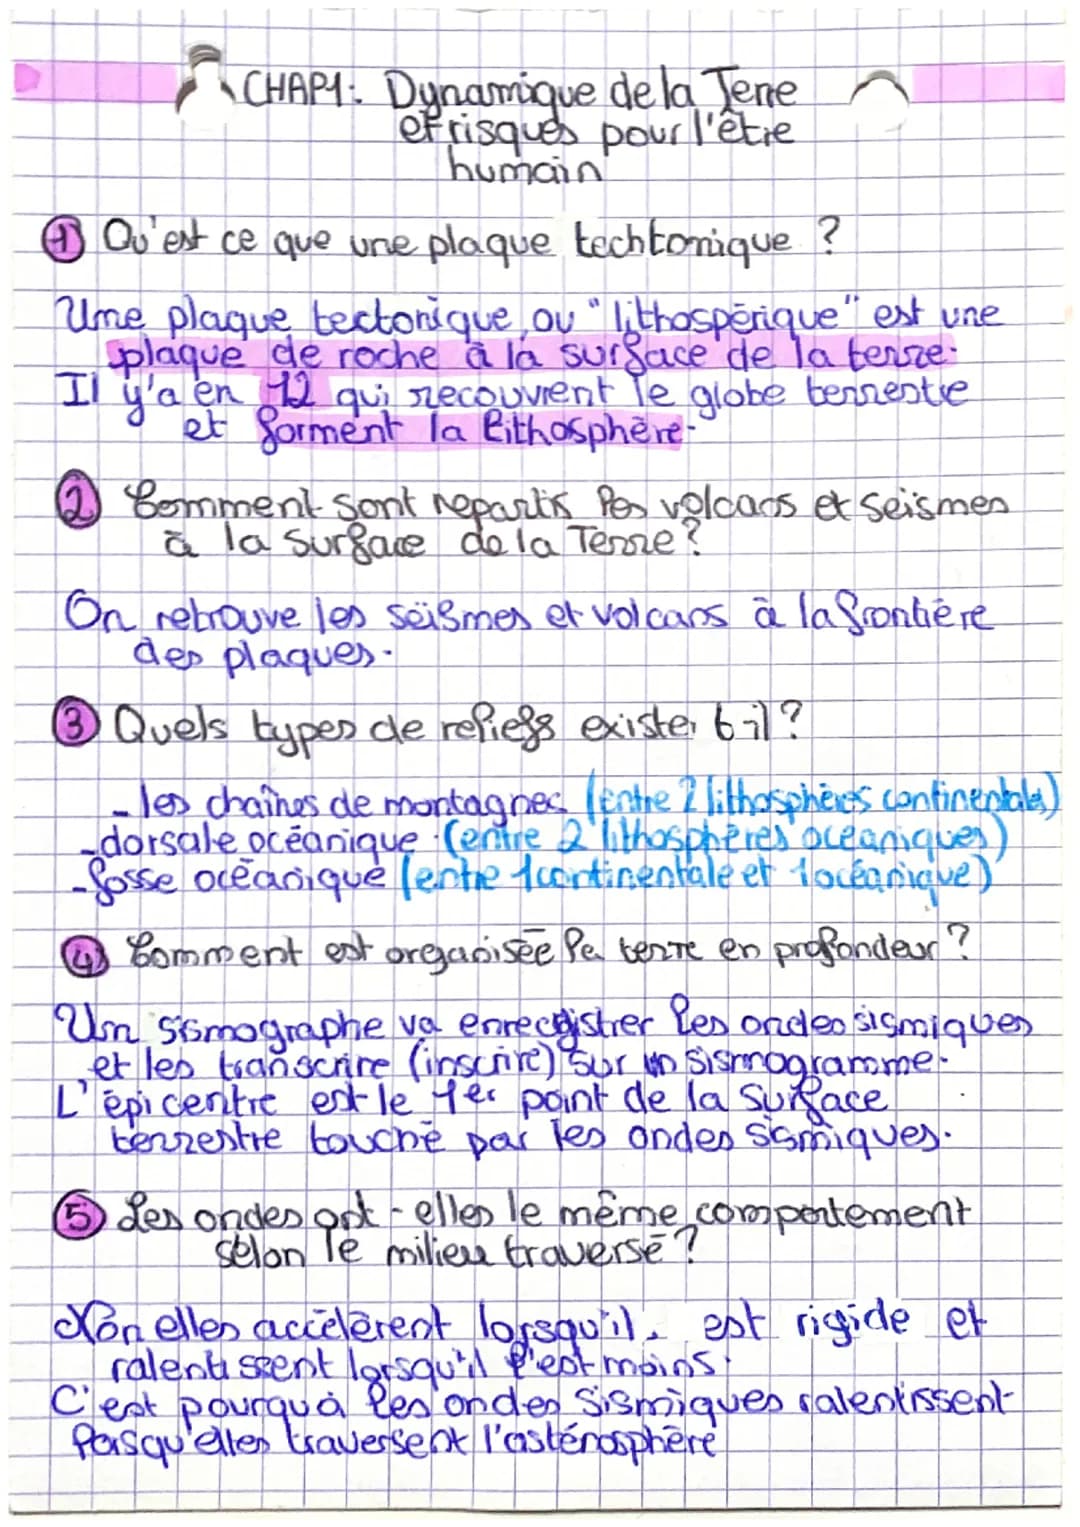 CHAP1: Dynamique de la Terre
et risques pour l'être
humain
① Qu'est ce que une plaque techtonique ?
Une plaque tectonique ou "lithospérique" est une
plaque de roche à la surface de la terre.
Il y'a en 12 qui recouvrent le globe terrestre
et forment la lithosphère.
② Comment sont repartis les volcans et seismes
à la surface de la Terre ?
On retrouve les séismes et volcans à la frontière
des plaques.
③ Quels types de reliefs existe t-il ?
- les chaînes de montagnes (entre 2 lithosphères continentales)
- dorsale océanique (entre 2 lithosphères océaniques)
- fosse océanique (entre 1 continentale et 1 océanique)
④ Comment est organisée la terre en profondeur ?
Un sismographe va enregistrer les ondes sismiques
et les transcrire (inscrire) sur un sismogramme.
L'épicentre est le 1er point de la surface
terrestre touché par les ondes sismiques.
⑤ Les ondes ont-elles le même comportement
selon le milieu traversé ?
Non elles accélèrent lorsqu'il est rigide et
ralentissent lorsqu'il l'est moins.
C'est pourquoi les ondes sismiques ralentissent
lorsqu'elles traversent l'asténosphère